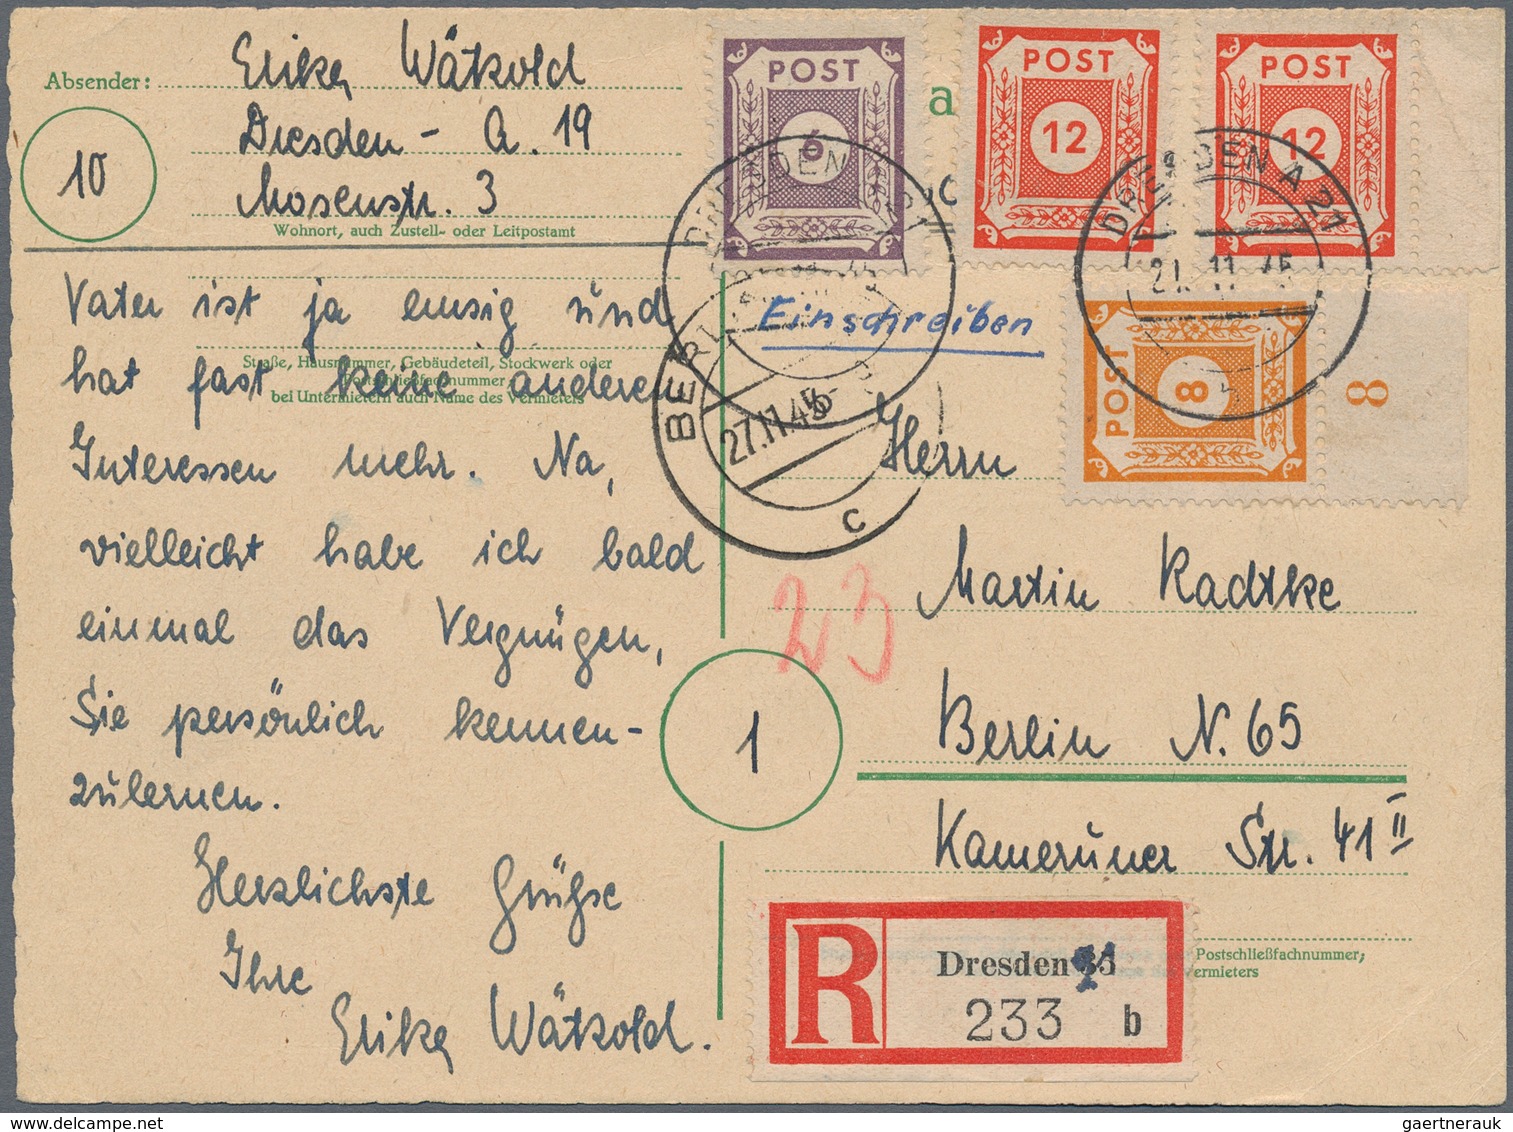 Absender: Erika Wätzold
Dresden - A. 19
10
Mosenstr. 3
Wohnort, auch Zustell- oder Leitpostamt
Vater ist ja emsig und
Straße, Hausnummer, Gebäudeteil, Stockwerk oder
Postschließfachnummer,
hat fast keine anderen
bei Untermietern auch Name des Vermieters
Interessen mehr. Na,
vielleicht habe ich bald
einmal das Vergnügen,
Sie persönlich kennen-
zulernen.
Herzlichste Grüße
Ihre
Erika Wätzold.
POST
6
a
POST
12
POST
12
c
DRESDEN A 21
21.11.45
BERLIN
27.11.45
c
Einschreiben
POST
8
8
Herrn
Martin Radtke
23
1
Berlin N. 65
Kameruner Str. 41 II
Postschließfachnummer;
Vermieters
R
Dresden 21
233 b
gaertnerauk